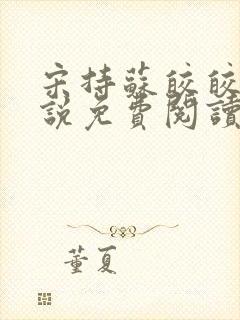 宋持蘇皎皎
說免費閱讀
董夏